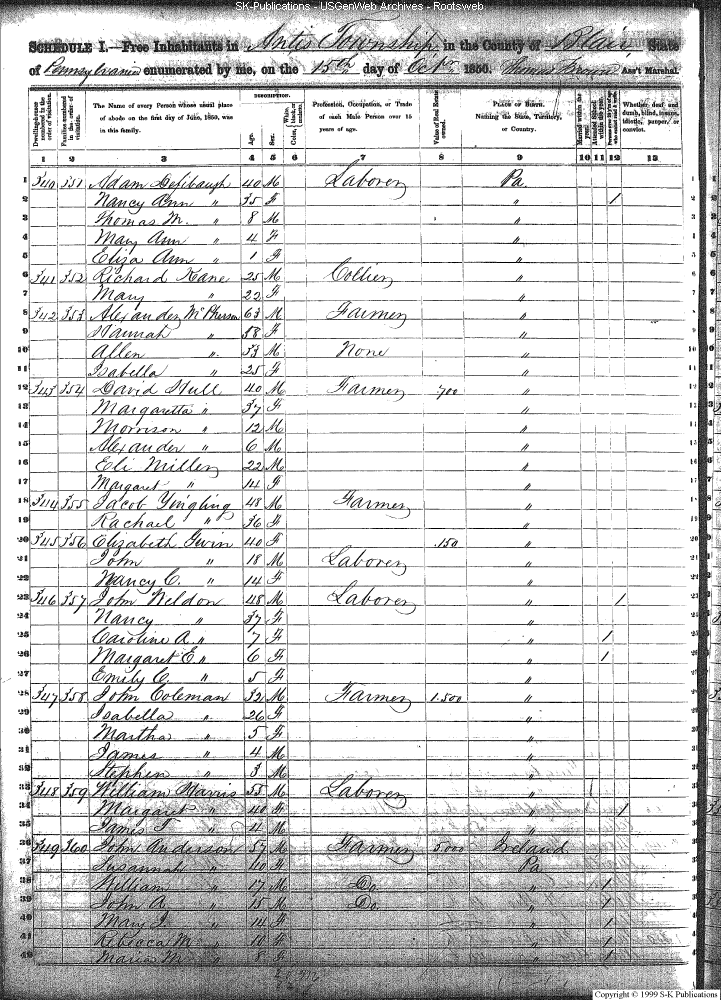 SK-Publications - USGenWeb Archives - Rootsweb
SCHEDULE I.—Free Inhabitants in Antis Township in the County of Blair State
of Pennsylvania enumerated by me, on the 15th day of Octr 1850. Thomas Ass't Marshal.
Dwelling-houses numbered in the order of visitation. Families numbered in the order of visitation. The Name of every Person whose usual place of abode on the first day of June, 1850, was in this family. DESCRIPTION. Age. Sex. Color, White, black, or mulatto. Profession, Occupation, or Trade of each Male Person over 15 years of age. Value of Real Estate owned. PLACE OF BIRTH. Naming the State, Territory, or Country. Married within the year. Attended School within the year. Whether deaf and dumb, blind, insane, idiotic, pauper, or convict.
1 2 3 4 5 6 7 8 9 10 11 12 13
1 340 351 Adam Defibaugh 40 M Laborer Pa.
2 Nancy Ann " 35 F " 1
3 Thomas M. " 8 M "
4 Mary Ann " 4 F "
5 Eliza Ann " 1 F "
6 341 352 Richard Kane 25 M Collier "
7 Mary " 22 F "
8 342 353 Alexander McPherson 63 M Farmer "
9 Hannah " 58 F "
10 Allen " 33 M None "
11 Isabella " 25 F "
12 343 354 David Hull 40 M Farmer 700 "
13 Margaretta " 37 F "
14 Morrison " 12 M "
15 Alexander " 6 M "
16 Eli Miller 22 M "
17 Margaret " 14 F "
18 344 355 Jacob Yingling 48 M Farmer "
19 Rachael " 36 F "
20 345 356 Elizabeth Givin 40 F 150 "
21 John " 18 M Laborer "
22 Nancy C. " 14 F "
23 346 357 John Weldon 48 M Laborer " 1
24 Nancy " 37 F "
25 Caroline A. " 7 F " 1
26 Margaret E. " 6 F " 1
27 Emily C. " 5 F "
28 347 358 John Coleman 32 M Farmer 1.500 "
29 Isabella " 26 F "
30 Martha " 5 F "
31 James " 4 M "
32 Stephen " 3 M "
33 348 359 William Harris 55 M Laborer "
34 Margaret " 40 F " 1
35 James T. " 4 M "
36 349 360 John Anderson 57 M Farmer 5000 Ireland
37 Susannah " 40 F Pa
38 William " 17 M Do. " 1
39 John A. " 15 M Do. " 1
40 Mary J. " 14 F " 1
41 Rebecca M. " 10 F " 1
42 Maria M. " 8 F " 1
Copyright © 1999 S-K Publications